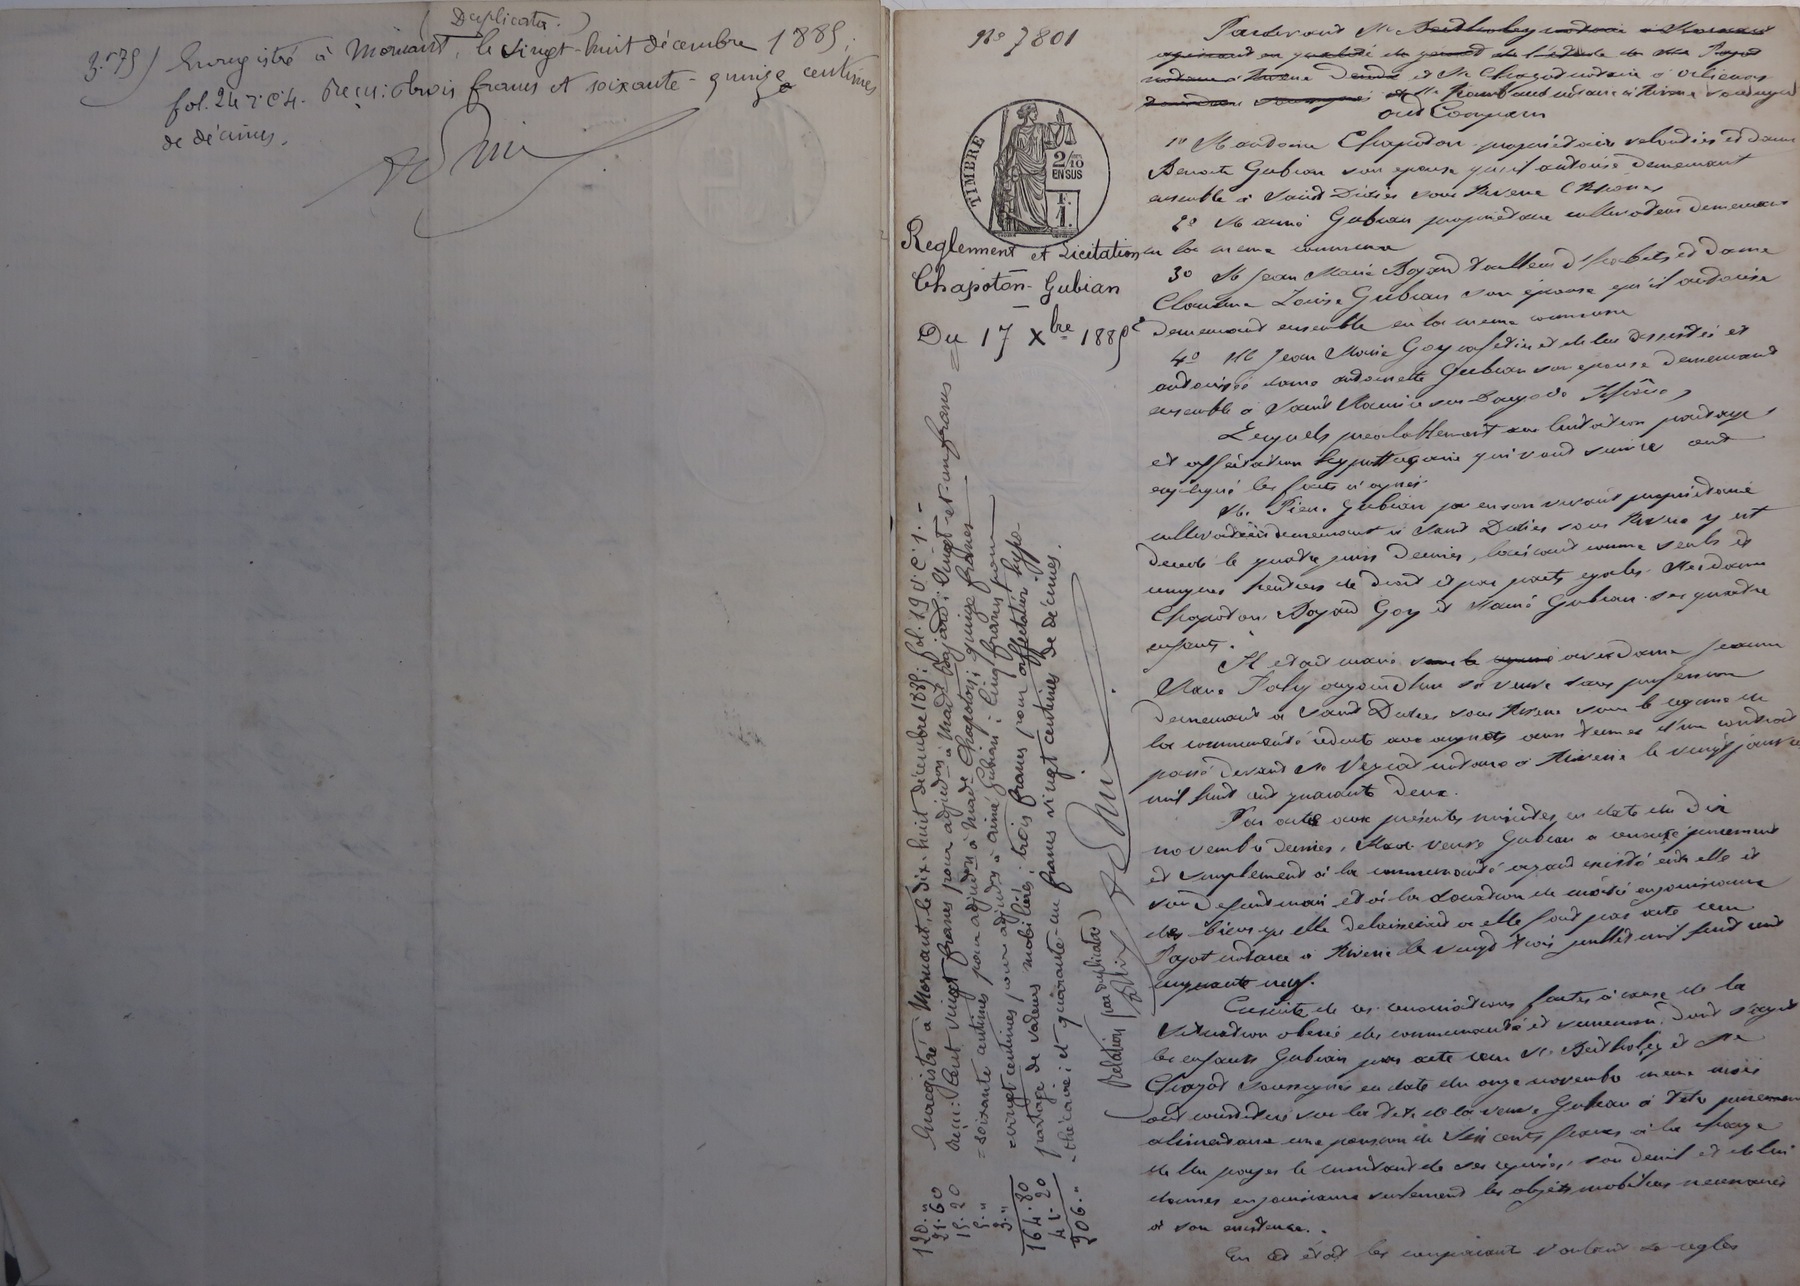 (Duplicata.)
3.75) Enregistré à Mornant, le vingt-huit décembre 1889;
fol. 24 v° c 4. Reçu: trois francs et soixante-quinze centimes
de décimes.
N° 7801
TIMBRE
2/10
EN SUS
F.
1.
Reglement et Licitation
Chapoton-Gubian
Du 17 Xbre 1889
Pardevant Me Bertholey notaire à Mornant
agissant en qualité de gérant de l'étude de Me Payot
notaire à Riverie et Me Chazot notaire à Orliénas
soussignés
ont Comparu
1° M. Chapoton propriétaire et dame
Benoite Gubian son épouse qu'il autorise demeurant
ensemble à Saint Didier sous Riverie (Rhône)
2° M. aimé Gubian propriétaire cultivateur demeurant
en la meme commune
3° M. Jean Marie Bojard tailleur d'habits et dame
Claudine Louise Gubian son épouse qu'il autorise
demeurant ensemble en la meme commune
4° M. Jean Marie Goy et de lui assistée et
autorisée dame antoinette Gubian son épouse demeurant
ensemble à Saint Maurice sur Dargoire Rhône,
Lesquels préalablement aux licitation partage
et affectation hypothécaire qui vont suivre ont
expliqué les faits ci après
M. Pierre Gubian en son vivant propriétaire
cultivateur demeurant à Saint Didier sous Riverie y est
décédé le quatre juin dernier, laissant comme seuls et
uniques héritiers de droit et par parts egales Mesdames
Chapoton, Bojard Goy et M. aimé Gubian ses quatre
enfants.
Il était marié avec dame Jeanne
Marie Joly aujourd'hui sa veuve sans profession
demeurant à Saint Didier sous Riverie sous le régime de
la communauté réduite aux acquets aux termes d'un contrat
passé devant Me notaire à Riverie le vingt janvier
mil huit cent quarante deux.
Par acte aux présentes minutes en date du dix
novembre dernier, Made veuve Gubian a renoncé purement
et simplement à la communauté ayant existé entre elle et
son defunt mari et à la donation de moitié en jouissance
des biens qu'elle à elle faite par acte reçu
Payot notaire à Riverie le vingt trois juillet mil huit cent
cinquante neuf.
Ensuite de ces renonciations faites à cause de la
situation obérée des communauté et succession dont s'agit
les enfants Gubian par acte reçu Me Bertholey et Me
Chazot soussignés en date du onze novembre meme mois
ont constitué sur la tete de la veuve Gubian à titre purement
alimentaire une pension de cents francs à la charge
de lui payer le montant de ses reprises, son deuil et de lui
donner en jouissance seulement les objets mobiliers nécessaires
à son existence.
En cet état les comparant voulant se regler
Enregistré à Mornant, le dix-huit décembre 1889; fol. 19 v° c 1. -
Reçu: Cent vingt francs pour adjudon à Made Bojard; vingt-et-un francs
= soixante centimes pour adjudon à Made Chapoton; quinze francs
= vingt centimes pour adjudon à aimé Gubian; cinq francs pour
partage de valeurs mobilières; trois francs pour affectation hypo
-thécaire; et quarante-un francs vingt centimes de décimes.
Relation (par duplicata)
120. "
21. 60
15. 20
5. "
3. "
164. 80
41. 20
206. "